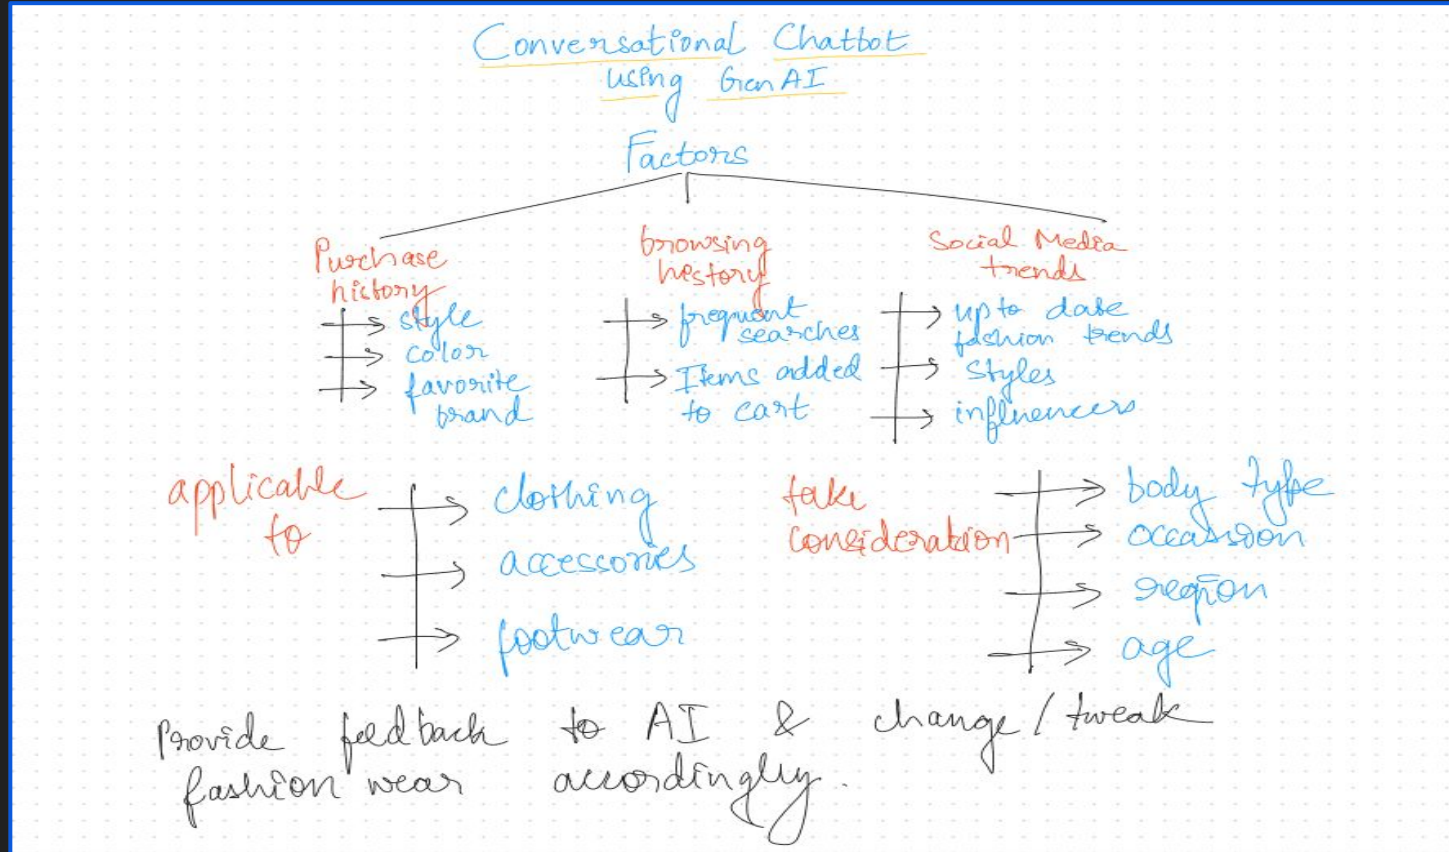 Conversational Chatbot
using Gen AI
Factors
Purchase
history
style
color
favorite
brand
browsing
history
frequent
searches
Items added
to cart
Social Media
trends
up to date
fashion trends
styles
influencers
applicable
to
clothing
accessories
footwear
take
consideration
body type
occassion
region
age
Provide feedback to AI & change/tweak
fashion wear accordingly.